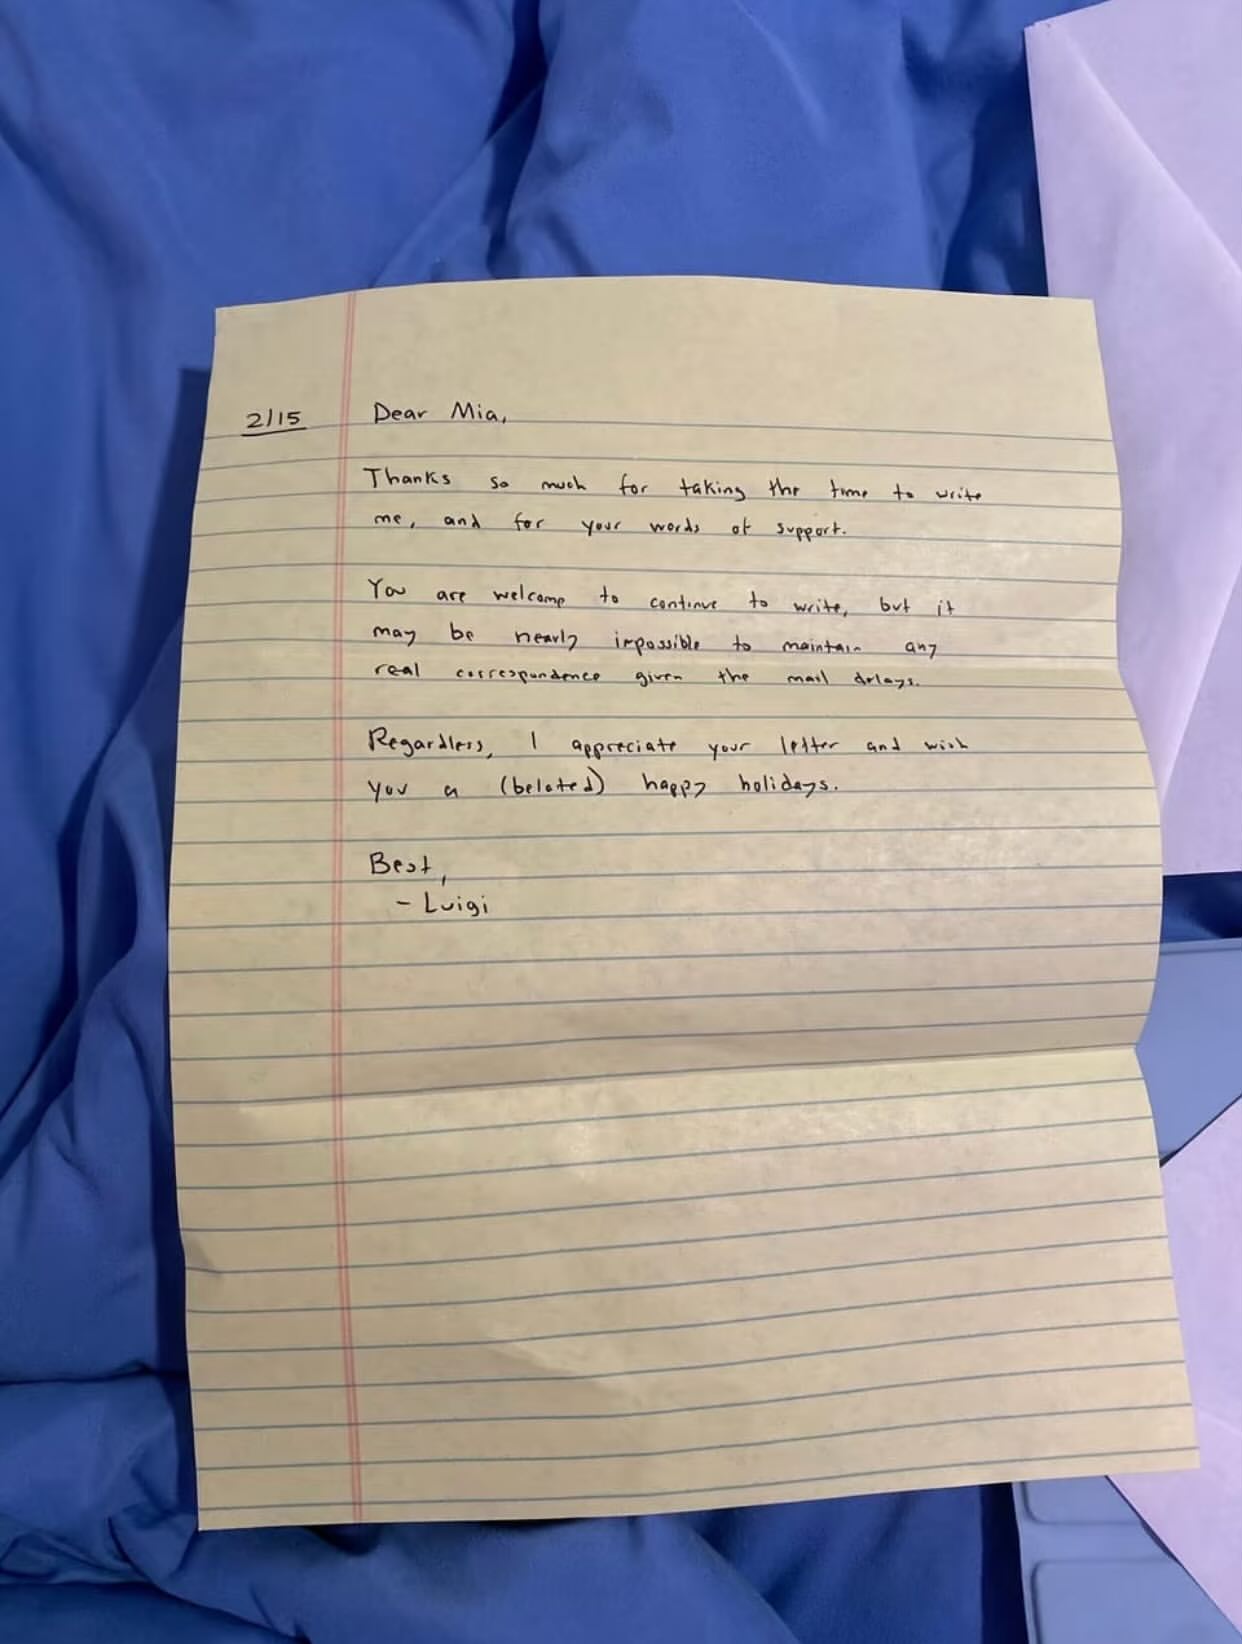 2/15 Dear Mia,
Thanks so much for taking the time to write
me, and for your words of support.
You are welcome to continue to write, but it
may be nearly impossible to maintain any
real correspondence given the mail delays.
Regardless, I appreciate your letter and wish
you a (belated) happy holidays.
Best,
- Luigi